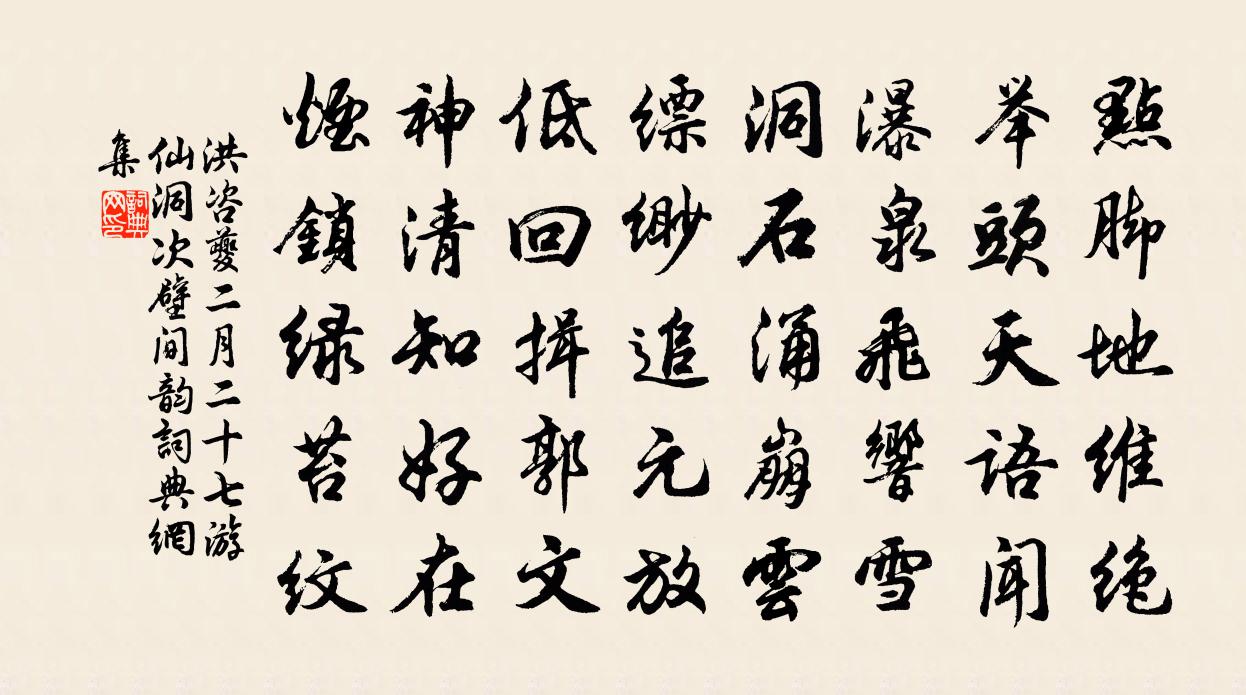 點脚地維绝
举頭天語闻
瀑泉飛響雪
洞石涌崩雲
缥缈追元放
低回揖郭文
神清知好在
煙鎖绿苔纹
洪咨夔二月二十七游
仙洞次壁间韵詞典網
集
詞典
网印